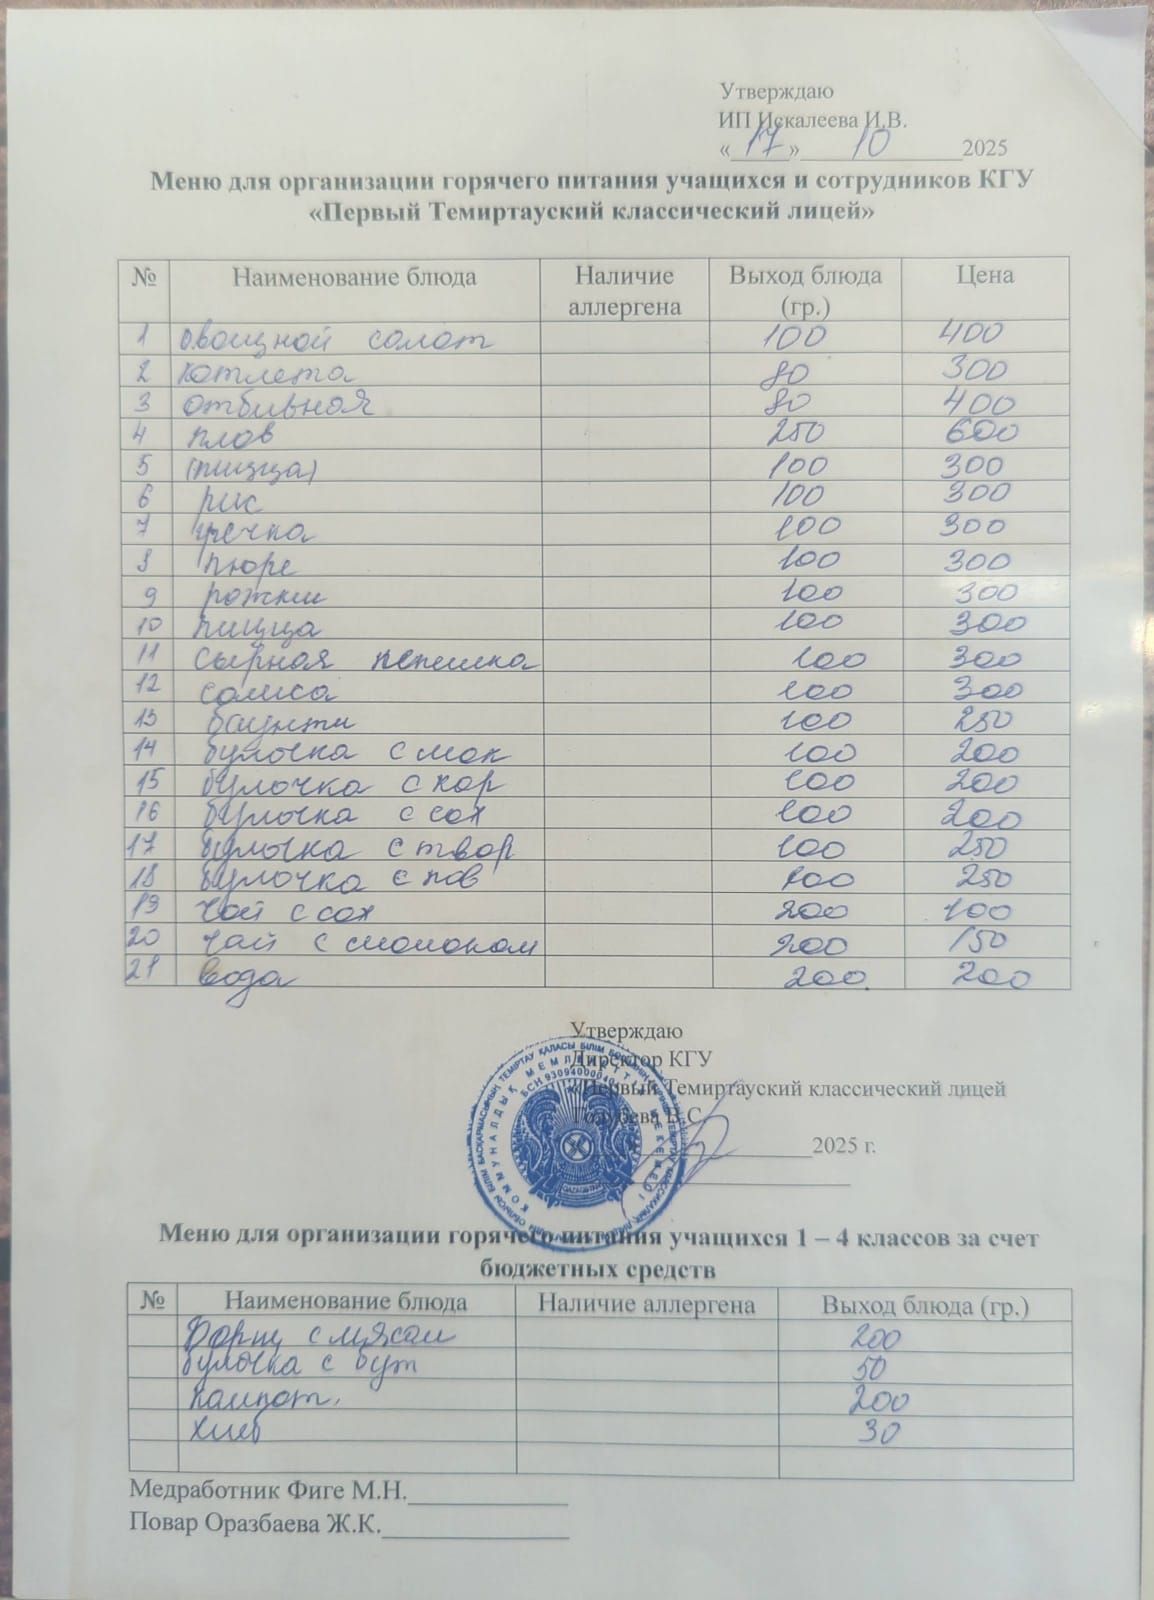 Утверждаю
ИП Искалеева И.В.
«17» 10 2025
Меню для организации горячего питания учащихся и сотрудников КГУ
«Первый Темиртауский классический лицей»
№ Наименование блюда Наличие аллергена Выход блюда (гр.) Цена
1 овощной салат 100 400
2 котлета 80 300
3 отбивная 80 400
4 плов 250 600
5 (пицца) 100 300
6 рис 100 300
7 гречка 100 300
8 пюре 100 300
9 рожки 100 300
10 пицца 100 300
11 сырная лепешка 100 300
12 самса 100 300
13 баунти 100 250
14 булочка с мак 100 200
15 булочка с кор 100 200
16 булочка с сах 100 200
17 булочка с твор 100 250
18 булочка с пов 100 250
19 чай с сах 200 100
20 чай с молоком 200 150
21 вода 200 200
Утверждаю
Директор КГУ
«Первый Темиртауский классический лицей
Голубева В.С.
2025 г.
Меню для организации горячего питания учащихся 1 – 4 классов за счет
бюджетных средств
№ Наименование блюда Наличие аллергена Выход блюда (гр.)
Борщ с мясом 200
булочка с бут 50
Компот. 200
Хлеб 30
Медработник Фиге М.Н.
Повар Оразбаева Ж.К.